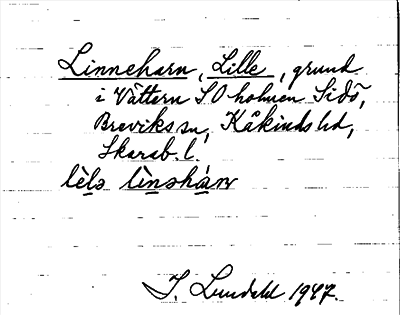 Linneharn, Lille, grund
i Vättern SO holmen Sidö,
Breviks sn, Kåkinds hd,
Skarab. l.
lèls lìnəhàrn
I. Lundahl 1947.